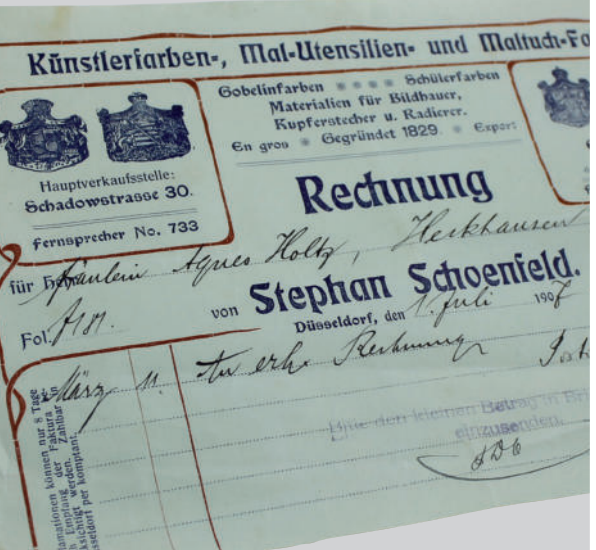 Künstlerfarben-, Mal-Utensilien- und Maltuch-Fa
Gobelinfarben Schülerfarben
Materialien für Bildhauer,
Kupferstecher u. Radierer.
En gros Gegründet 1829. Export
Hauptverkaufsstelle:
Schadowstrasse 30.
Fernsprecher No. 733
Rechnung
für Fräulein Agnes Holtz,
von Stephan Schoenfeld.
Düsseldorf, den 1. Juli 1907
Fol.
März 11. An erh. Rechnung
Bitte den kleinen Betrag in Bri
einzusenden.
lamationen können nur 8 Tage
h Empfang der Faktura
ksichtigt werden. Zahlbar in
sseldorf per komptant.